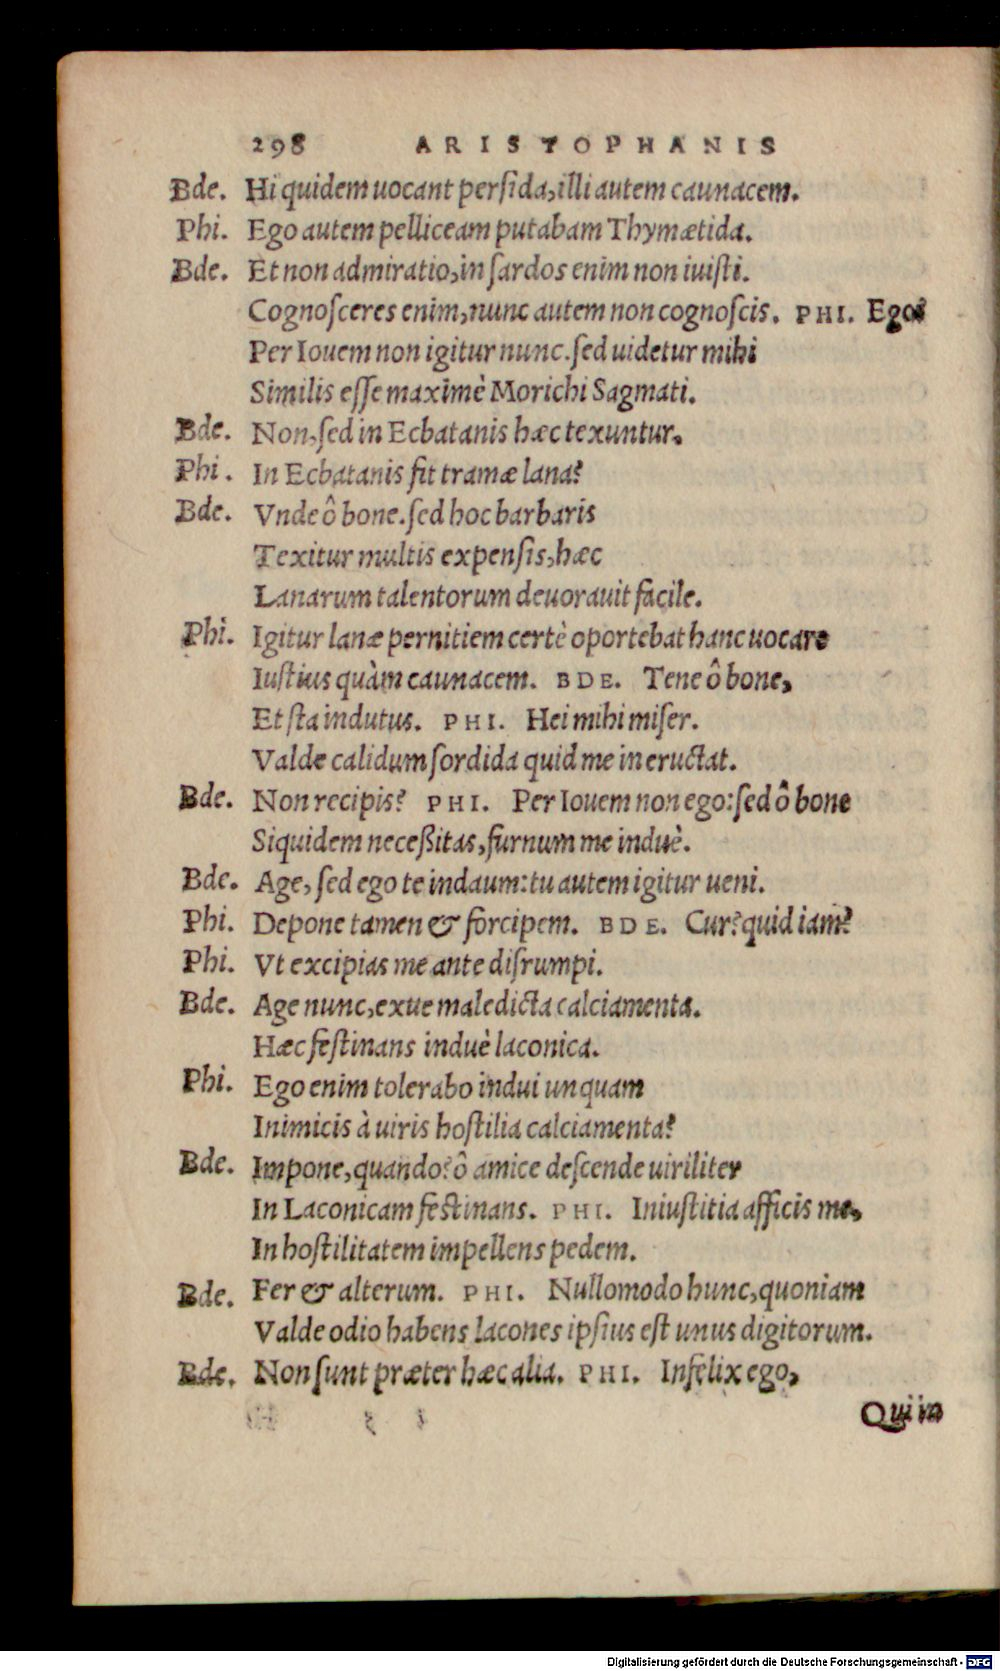 298 ARISTOPHANIS
Bde. Hi quidem uocant persida, illi autem caunacem.
Phi. Ego autem pelliceam putabam Thymætida.
Bde. Et non admiratio, in sardos enim non iuisti.
Cognosceres enim, nunc autem non cognoscis. PHI. Ego?
Per Iouem non igitur nunc. sed uidetur mihi
Similis esse maximè Morichi Sagmati.
Bde. Non, sed in Ecbatanis hæc texuntur.
Phi. In Ecbatanis fit tramæ lana?
Bde. Vnde ô bone. sed hoc barbaris
Texitur multis expensis, hæc
Lanarum talentorum deuorauit facile.
Phi. Igitur lanæ pernitiem certè oportebat hanc uocare
Iustius quàm caunacem. BDE. Tene ô bone,
Et sta indutus. PHI. Hei mihi miser.
Valde calidum sordida quid me in eructat.
Bde. Non recipis? PHI. Per Iouem non ego: sed ô bone
Siquidem neceßitas, furnum me induè.
Bde. Age, sed ego te indaum: tu autem igitur ueni.
Phi. Depone tamen & forcipem. BDE. Cur? quid iam?
Phi. Vt excipias me ante disrumpi.
Bde. Age nunc, exue maledicta calciamenta.
Hæc festinans induè laconica.
Phi. Ego enim tolerabo indui unquam
Inimicis à uiris hostilia calciamenta?
Bde. Impone, quando? ô amice descende uiriliter
In Laconicam festinans. PHI. Iniustitia afficis me,
In hostilitatem impellens pedem.
Bde. Fer & alterum. PHI. Nullomodo hunc, quoniam
Valde odio habens lacones ipsius est unus digitorum.
Bde. Non sunt præter hæc alia. PHI. Infelix ego,
Qui in
Digitalisierung gefördert durch die Deutsche Forschungsgemeinschaft - DFG